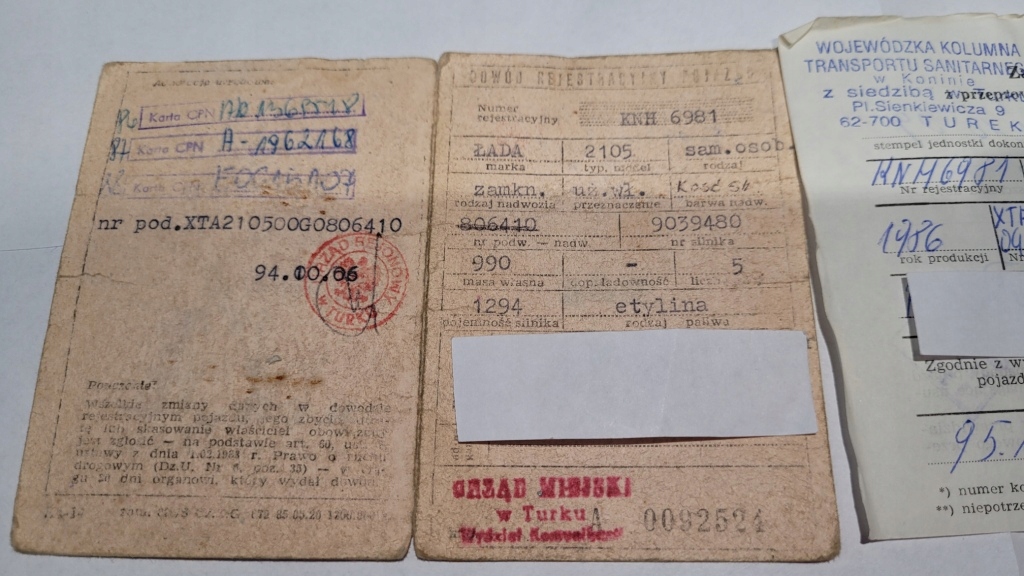 86 Karta CPN
87 Karta CPN A-1962168
Karta CPN
nr pod.XTA210500G0806410
94.
URZĄD REJONOWY
W TURKU
Pouczenie
Wszelkie zmiany danych w dowodzie
rejestracyjnym pojazdu, jego zbycie
ich skasowanie właściciel obowiązany
jest zgłosić — na podstawie art. 60, ust.
ustawy z dnia 1.02.1983 r. Prawo o ruchu
drogowym (Dz.U. Nr 6, poz. 35) —
dni organowi, który wydał dowód
DOWÓD REJESTRACYJNY POJAZDU
Numer
rejestracyjny KNH 6981
ŁADA 2105 sam.osob.
marka typ, model rodzaj
zamkn. uż.wł. Kość sł
rodzaj nadwozia przeznaczenie barwa nadw.
806410 9039480
nr podw. — nadw. nr silnika
990 - 5
masa własna dop. ładowność
1294 etylina
pojemność silnika rodzaj paliwa
URZĄD MIEJSKI
w Turku
Wydział Komunikacji
A 0092524
WOJEWÓDZKA KOLUMNA
TRANSPORTU SANITARNEG
w Koninie
z siedzibą w
z przeprow
Pl.Sienkiewicza 9
62-700 TUREK
stempel jednostki dokon
KNH6981
Nr rejestracyjny
1986
rok produkcji
Zgodnie z w
pojazd
95.
*) numer ko
**) niepotrze